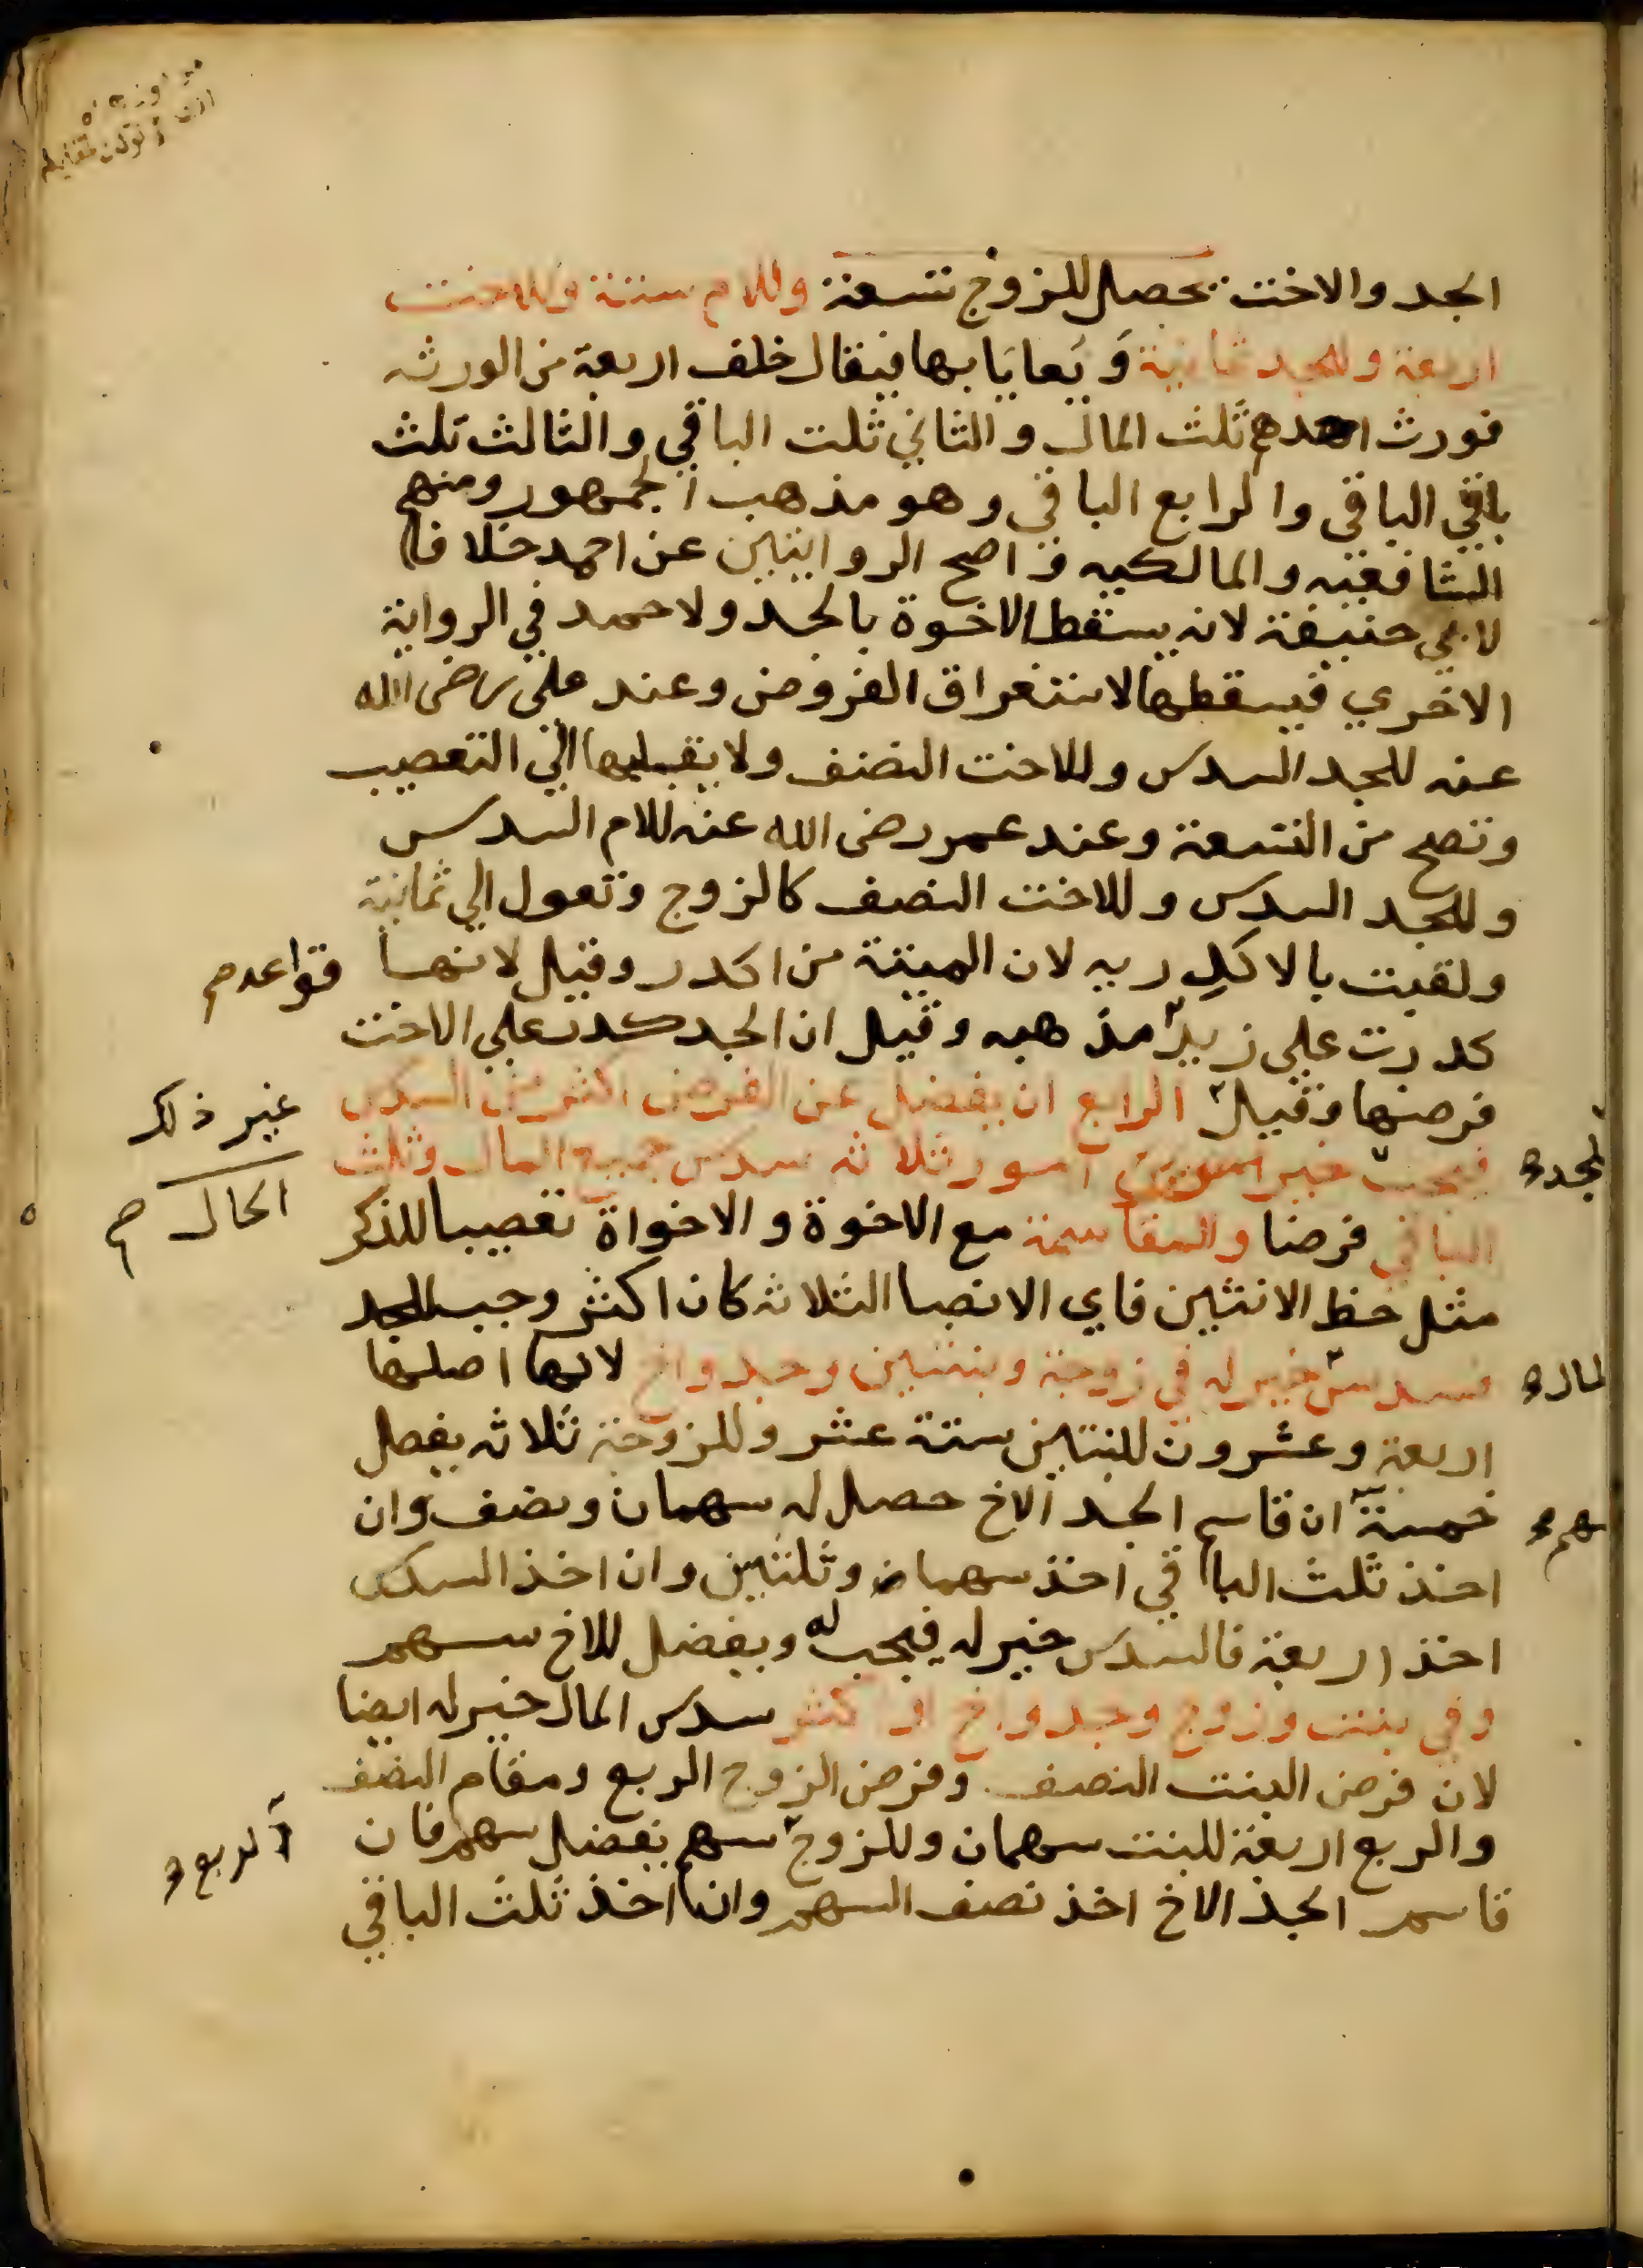 الجد والاخت يحصل للزوج تسعة وللام ستة وللاخت
اربعة وللجد ثمانية وَيَعايَا بها فيقال خلف اربعة من الورثه
فورث احدهم ثلث المال والثاني ثلث الباقي والثالث ثلث
باقي الباقي والرابع الباقي وهو مذهب الجمهور ومنهم
الشافعيه والمالكيه واصح الروايتين عن احمد خلافا
لابي حنيفة لانه يسقط الاخوة بالجد ولاحمد في الرواية
الاخري فيسقطها لاستغراق الفروض وعند علي رضى الله
عنه للجد السدس وللاخت النصف ولا يقبلها الي التعصيب
وتصح من التسعة وعند عمر رضى الله عنه للام السدس
وللجد السدس وللاخت النصف كالزوج وتعول الي ثمانية
ولقبت بالاكدريه لان الميتة من اكدر وقيل لانها
قواعد م
كدرت علي زيد مذهبه وقيل ان الجد كدر علي الاخت
فرضها وقيل الرابع ان يفضل عن الفرض اكثر من السدس
غير ذلك
فيجب خير امور ثلاثه سدس جميع المال وثلث
للجد
الحال م
الباقي فرضا والمقاسمة مع الاخوة والاخواة تعصيبا للذكر
مثل حظ الانثيين فاي الانصبا الثلاثه كان اكثر وجب للجد
فسدس خير له في زوجة وبنتين وجد واخ لانها اصلها
المال
اربعة وعشرون للبنتين ستة عشر وللزوجة ثلاثه يفضل
خمسة ان قاسم الجد الاخ حصل له سهمان ونصف وان
سهم
اخذ ثلث الباقي اخذ سهما وثلثين وان اخذ السدس
اخذ اربعة فالسدس خير له فيجب له ويفضل للاخ سهم
وفي بنت وزوج وجد واخ او اكثر سدس المال خير له ايضا
لان فرض البنت النصف وفرض الزوج الربع ومقام النصف
والربع اربعة للبنت سهمان وللزوج سهم يفضل سهم فان
الربع
قاسم الجد الاخ اخذ نصف السهم وان اخذ ثلث الباقي